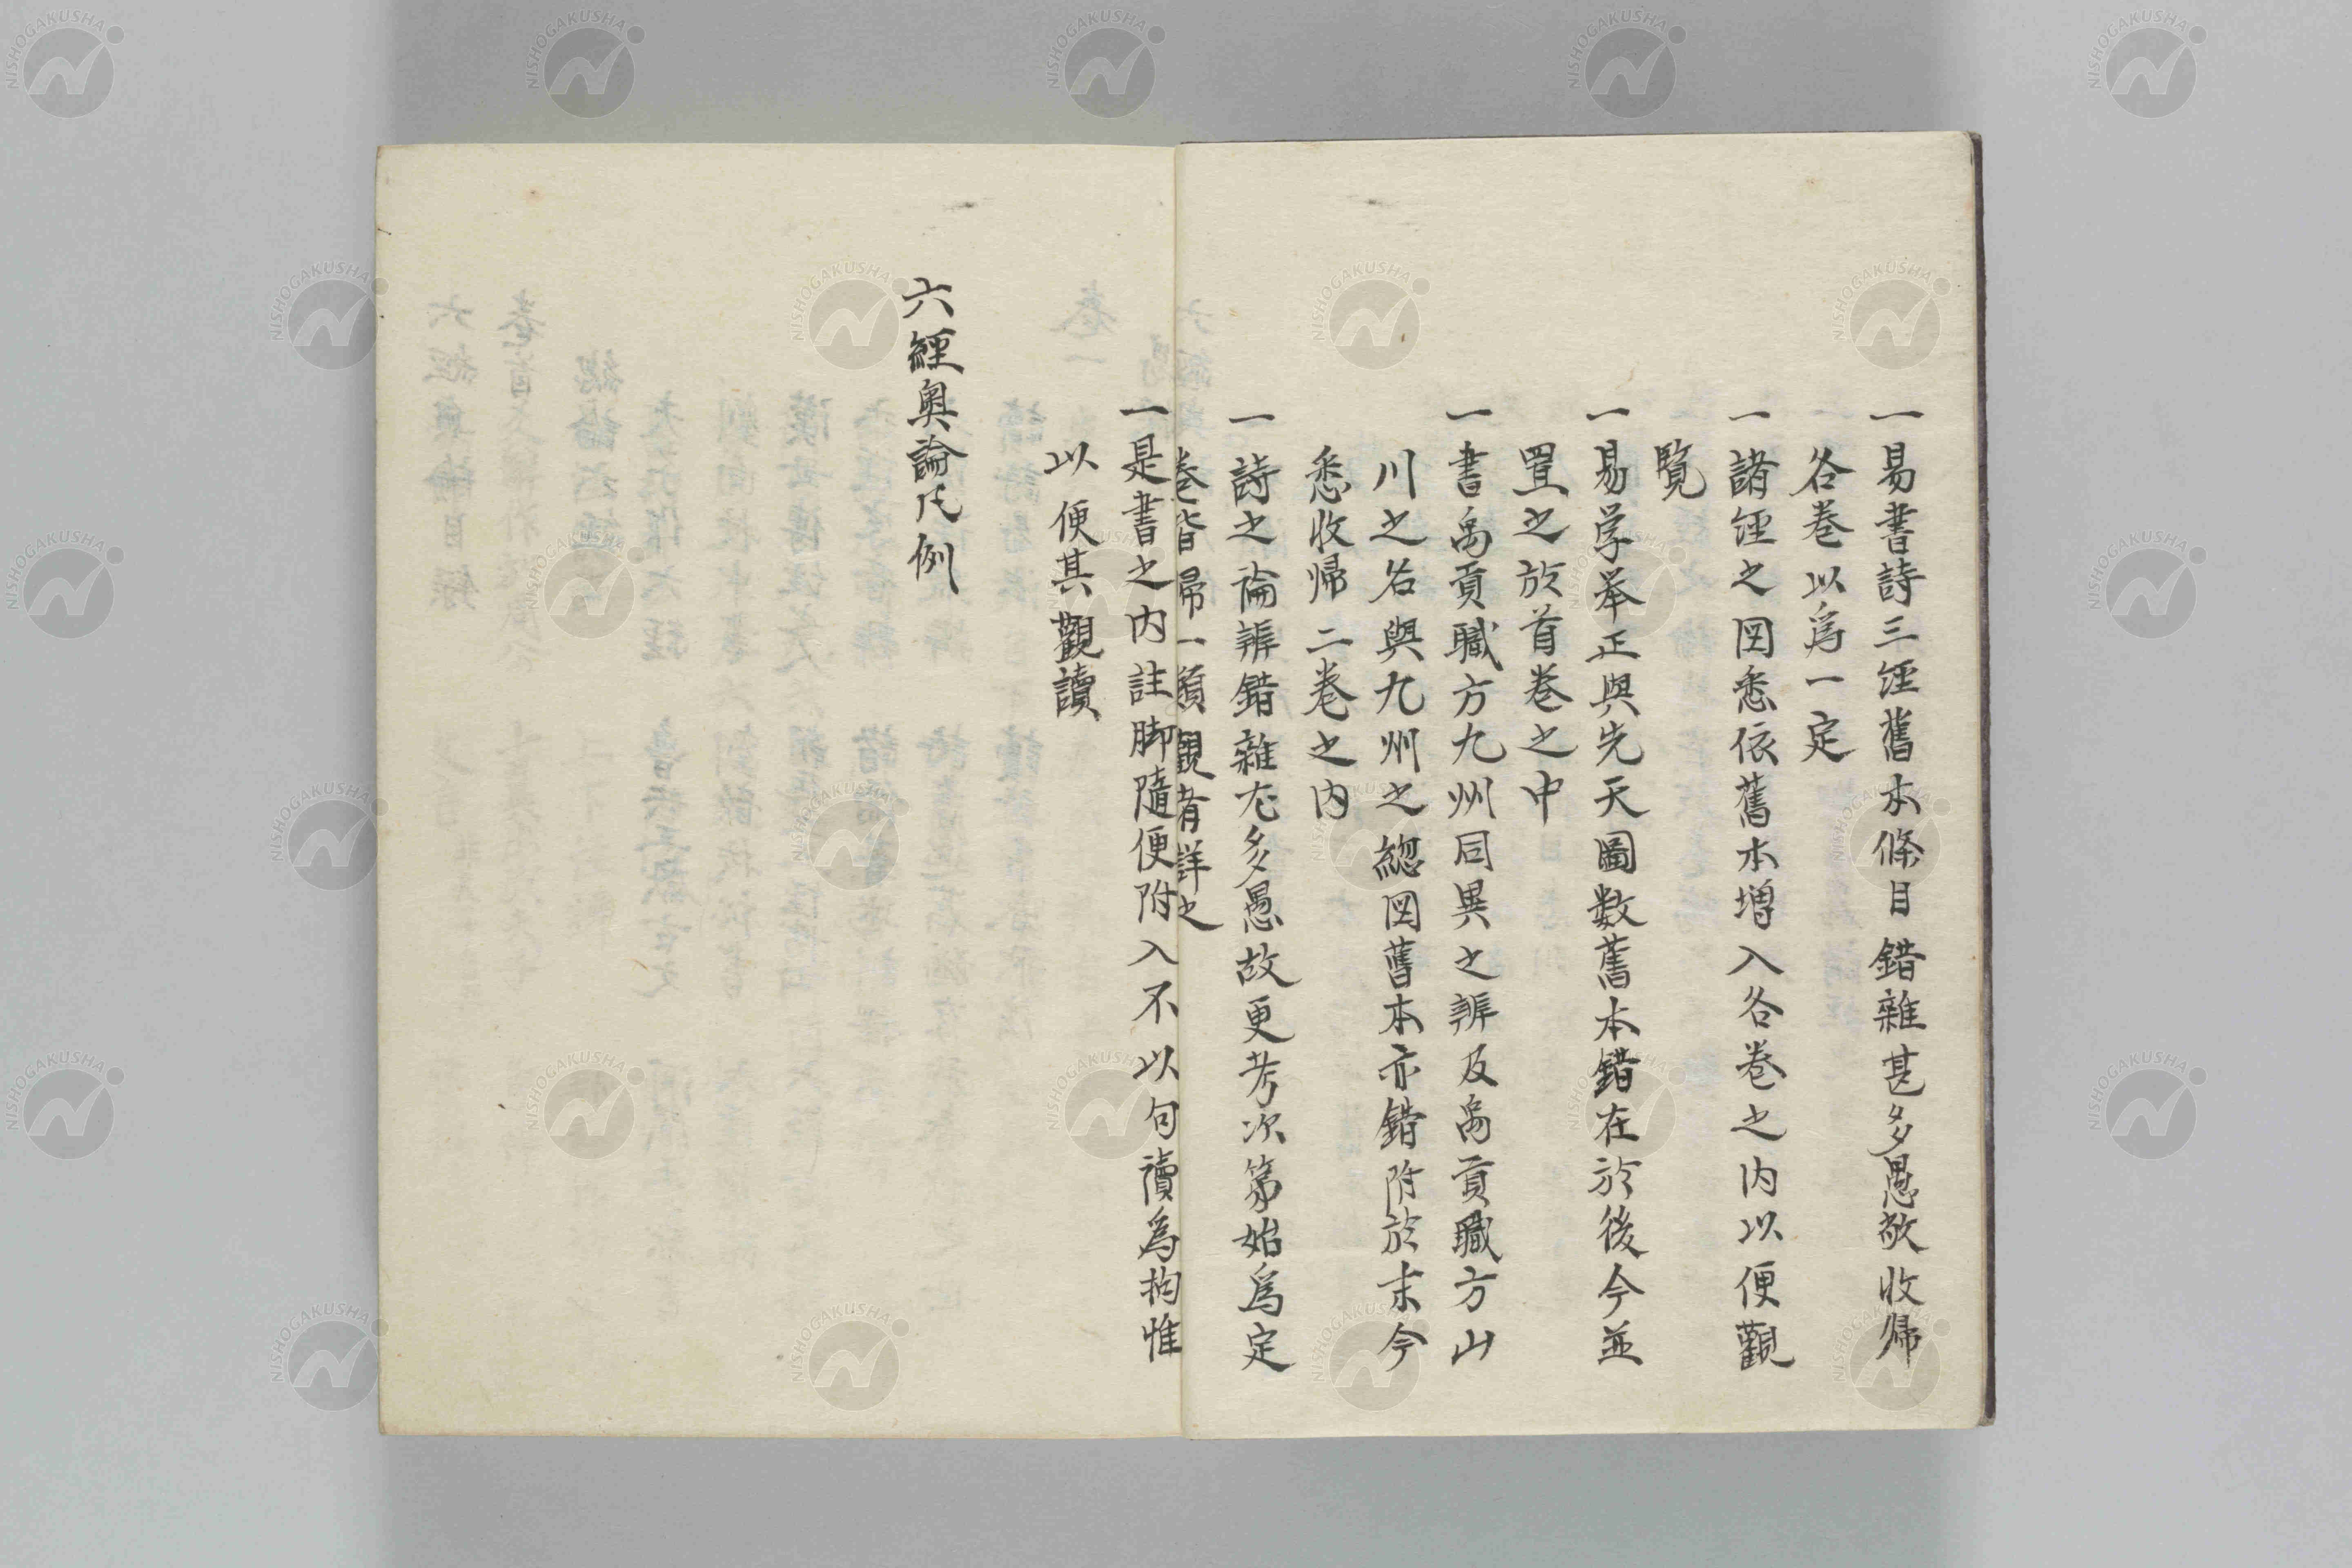 一易書詩三経舊本條目錯雜甚多愚敬收帰
各巻以為一定
一諸経之図悉依舊本增入各巻之内以便觀
覽
一易学举正與先天圖数舊本錯在於後今並
置之於首巻之中
一書禹貢職方九州同異之辨及禹貢職方山
川之名與九州之総図舊本亦錯附於末今
悉收帰二巻之内
一詩之論辨錯雜尤多愚故更考次第始為定
巻皆帰一類觀者詳之
一是書之内註脚隨便附入不以句讀為拘惟
以便其觀讀
六經奥論凡例
NISHOGAKUSHA